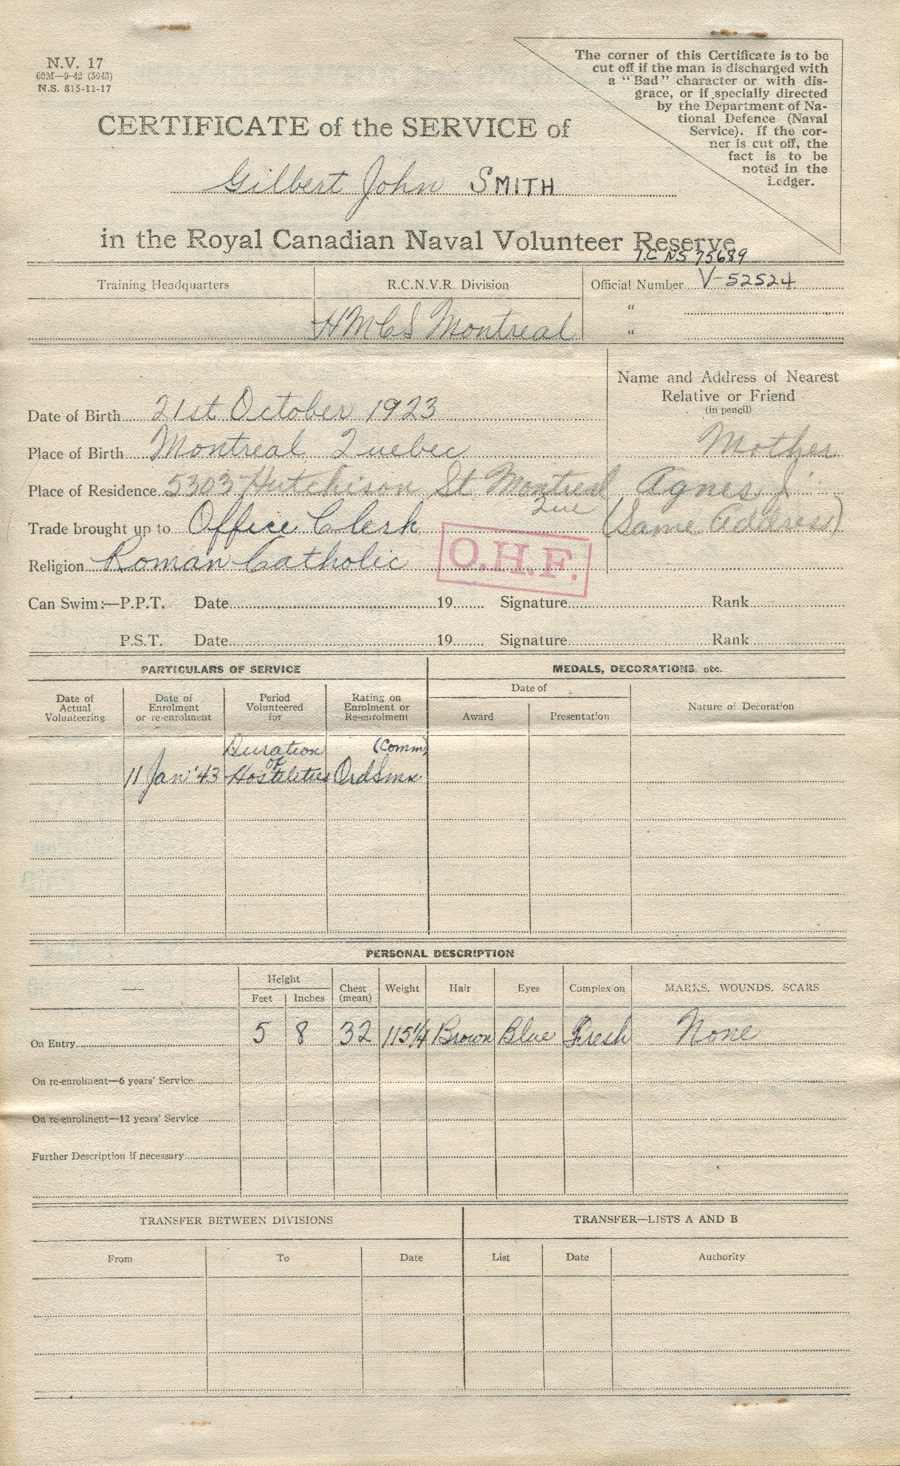 N.V. 17
60M—9-42 (5943)
N.S. 815-11-17
The corner of this Certificate is to be
cut off if the man is discharged with
a "Bad" character or with dis-
grace, or if specially directed
by the Department of Na-
tional Defence (Naval
Service). If the cor-
ner is cut off, the
fact is to be
noted in the
Ledger.
CERTIFICATE of the SERVICE of
Gilbert John SMITH
in the Royal Canadian Naval Volunteer Reserve
I.C NS 75689
Training Headquarters R.C.N.V.R. Division Official Number V-52524
"
HMCS Montreal "
Name and Address of Nearest
Relative or Friend
(in pencil)
Date of Birth 21st October 1923
Place of Birth Montreal Quebec Mother
Place of Residence 5303 Hutchison St Montreal Agnes J
Que
Trade brought up to Office Clerk (Same Address)
Religion Roman Catholic O.H.F.
Can Swim:—P.P.T. Date 19 Signature Rank
P.S.T. Date 19 Signature Rank
PARTICULARS OF SERVICE MEDALS, DECORATIONS, etc.
Date of Actual Volunteering Date of Enrolment or re-enrolment Period Volunteered for Rating on Enrolment or Re-enrolment Date of Award Presentation Nature of Decoration
Duration (Comm)
of
11 Jan '43 Hostilities OrdSmn
PERSONAL DESCRIPTION
— Height Feet Inches Chest (mean) Weight Hair Eyes Complexion MARKS, WOUNDS, SCARS
On Entry 5 8 32 115¼ Brown Blue Fresh None
On re-enrolment—6 years' Service
On re-enrolment—12 years' Service
Further Description if necessary
TRANSFER BETWEEN DIVISIONS TRANSFER—LISTS A AND B
From To Date List Date Authority